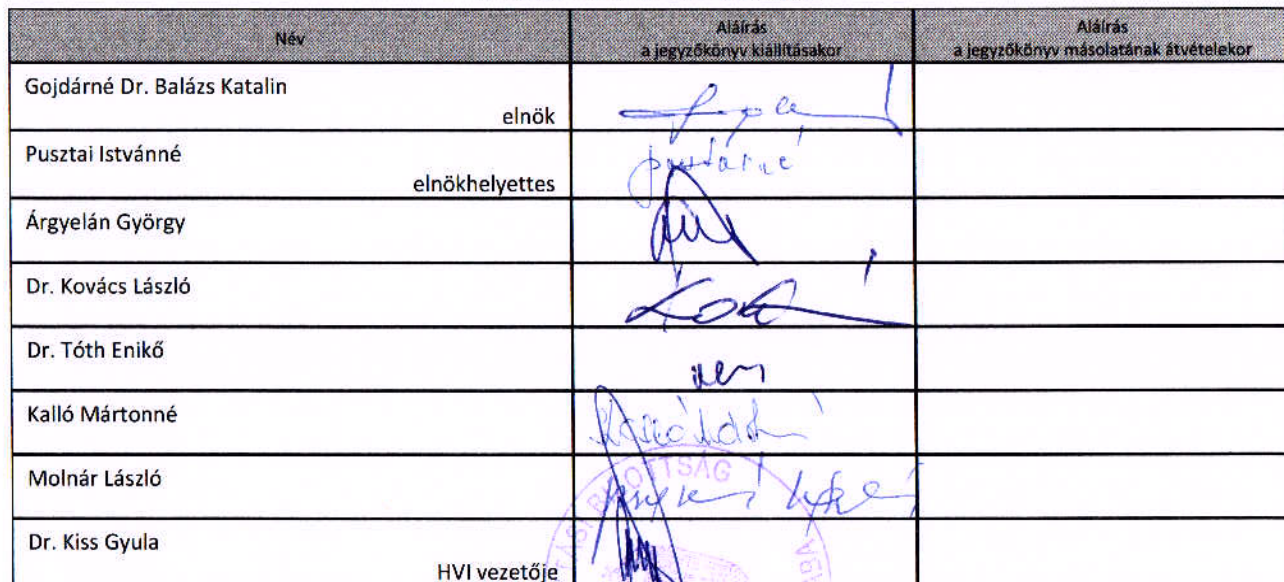 Név
Aláírás
a jegyzőkönyv kiállításakor
Aláírás
a jegyzőkönyv másolatának átvételekor
Gojdárné Dr. Balázs Katalin
elnök
Pusztai Istvánné
elnökhelyettes
Árgyelán György
Dr. Kovács László
Dr. Tóth Enikő
nem
Kalló Mártonné
Molnár László
Dr. Kiss Gyula
HVI vezetője